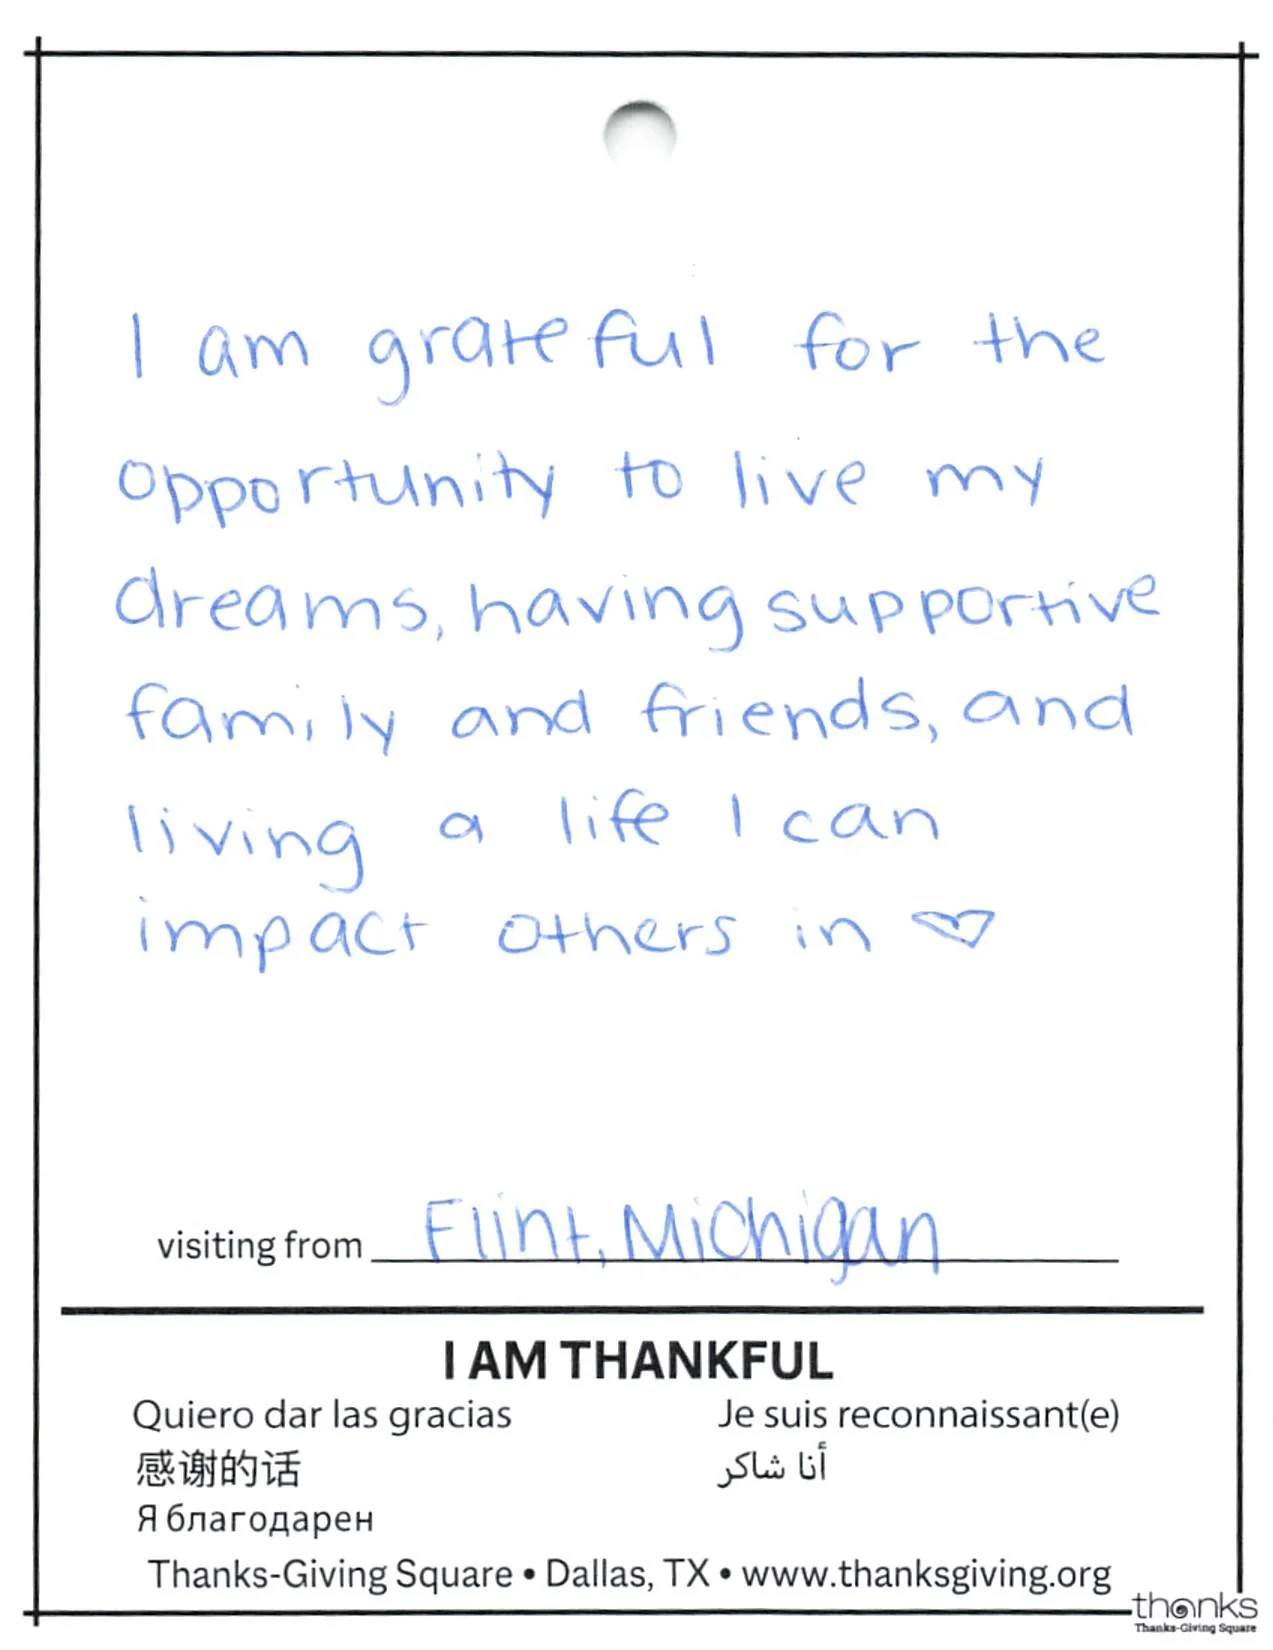 I am grateful for the
opportunity to live my
dreams, having supportive
family and friends, and
living a life I can
impact others in ♡
visiting from Flint, Michigan
I AM THANKFUL
Quiero dar las gracias
Je suis reconnaissant(e)
感谢的话
أنا شاكر
Я благодарен
Thanks-Giving Square • Dallas, TX • www.thanksgiving.org
thanks
Thanks-Giving Square